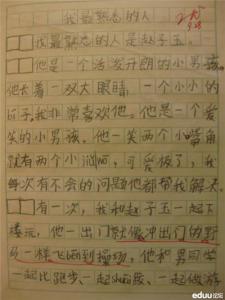 我最熟悉的人
我最熟悉的人是赵子玉。
他是一个活泼开朗的小男孩。
他长着一双大眼睛，一个小小的
子我非常喜欢他。他是一个爱
笑的小男孩。他一笑两个小嘴角
就有两个小酒窝，可爱极了，我
每次有不会的问题他都帮我解决。
有一次，我和赵子玉一起下
楼玩，他一出门就像冲出门的野
马一样飞跑到操场，他和男同学
一起比跑步、一起 一起做游
eduu论坛